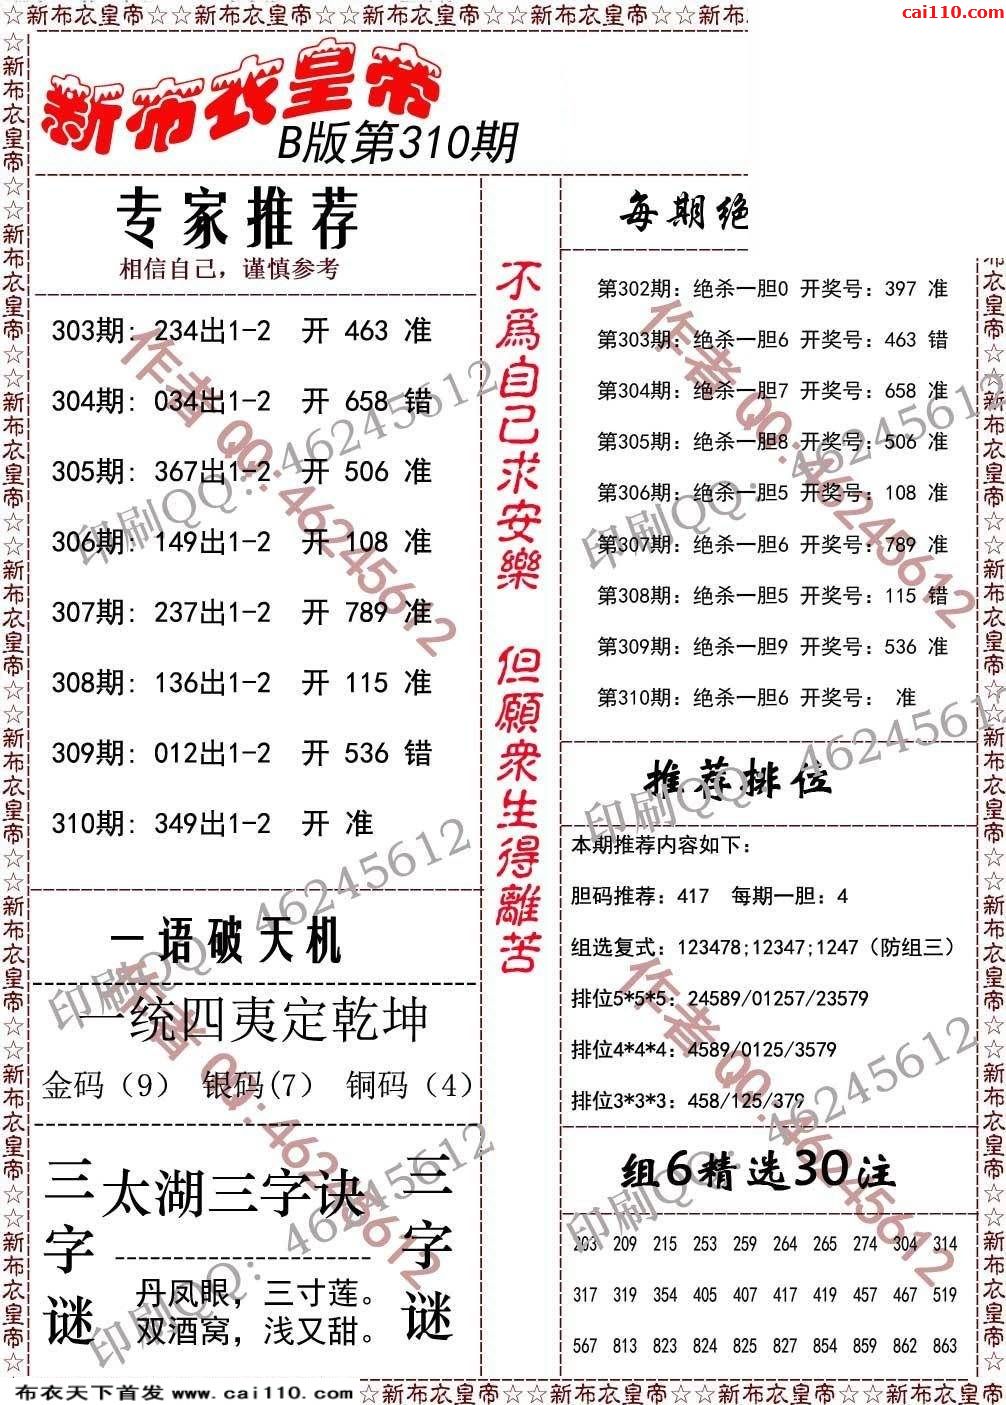 ☆新布衣皇帝☆☆新布衣皇帝☆☆新布衣皇帝☆☆新布衣皇帝☆☆新布
cai110.com
新布衣皇帝
B版第310期
专家推荐
相信自己，谨慎参考
303期: 234出1-2 开 463 准
304期: 034出1-2 开 658 错
305期: 367出1-2 开 506 准
306期: 149出1-2 开 108 准
307期: 237出1-2 开 789 准
308期: 136出1-2 开 115 准
309期: 012出1-2 开 536 错
310期: 349出1-2 开 准
一语破天机
一统四夷定乾坤
金码（9） 银码(7) 铜码（4）
三字谜
太湖三字诀
丹凤眼，三寸莲。
双酒窝，浅又甜。
三字谜
不為自己求安樂 但願衆生得離苦
每期绝
第302期: 绝杀一胆0 开奖号: 397 准
第303期: 绝杀一胆6 开奖号: 463 错
第304期: 绝杀一胆7 开奖号: 658 准
第305期: 绝杀一胆8 开奖号: 506 准
第306期: 绝杀一胆5 开奖号: 108 准
第307期: 绝杀一胆6 开奖号: 789 准
第308期: 绝杀一胆5 开奖号: 115 错
第309期: 绝杀一胆9 开奖号: 536 准
第310期: 绝杀一胆6 开奖号: 准
推荐排位
本期推荐内容如下:
胆码推荐: 417 每期一胆: 4
组选复式: 123478;12347;1247（防组三）
排位5*5*5: 24589/01257/23579
排位4*4*4: 4589/0125/3579
排位3*3*3: 458/125/379
组6精选30注
203 209 215 253 259 264 265 274 304 314
317 319 354 405 407 417 419 457 467 519
567 813 823 824 825 827 854 859 862 863
作者 QQ: 46245612
印刷QQ: 46245612
作者 QQ: 46245612
印刷QQ: 46245612
作者 QQ: 46245612
印刷QQ: 46245612
作者 QQ: 46245612
印刷QQ: 46245612
印刷QQ: 46245612
印刷QQ: 46245612
☆新布衣皇帝☆☆新布衣皇帝☆☆新布衣皇帝☆☆新布衣皇帝☆☆新布衣皇帝☆☆新布衣皇帝☆☆新布衣皇帝☆☆新布衣皇帝☆
衣皇帝☆☆新布衣皇帝☆☆新布衣皇帝☆☆新布衣皇帝☆☆新布衣皇帝☆☆新布衣皇帝☆☆新布衣皇帝☆
布衣天下首发 www.cai110.com ☆新布衣皇帝☆☆新布衣皇帝☆☆新布衣皇帝☆☆新布衣皇帝☆